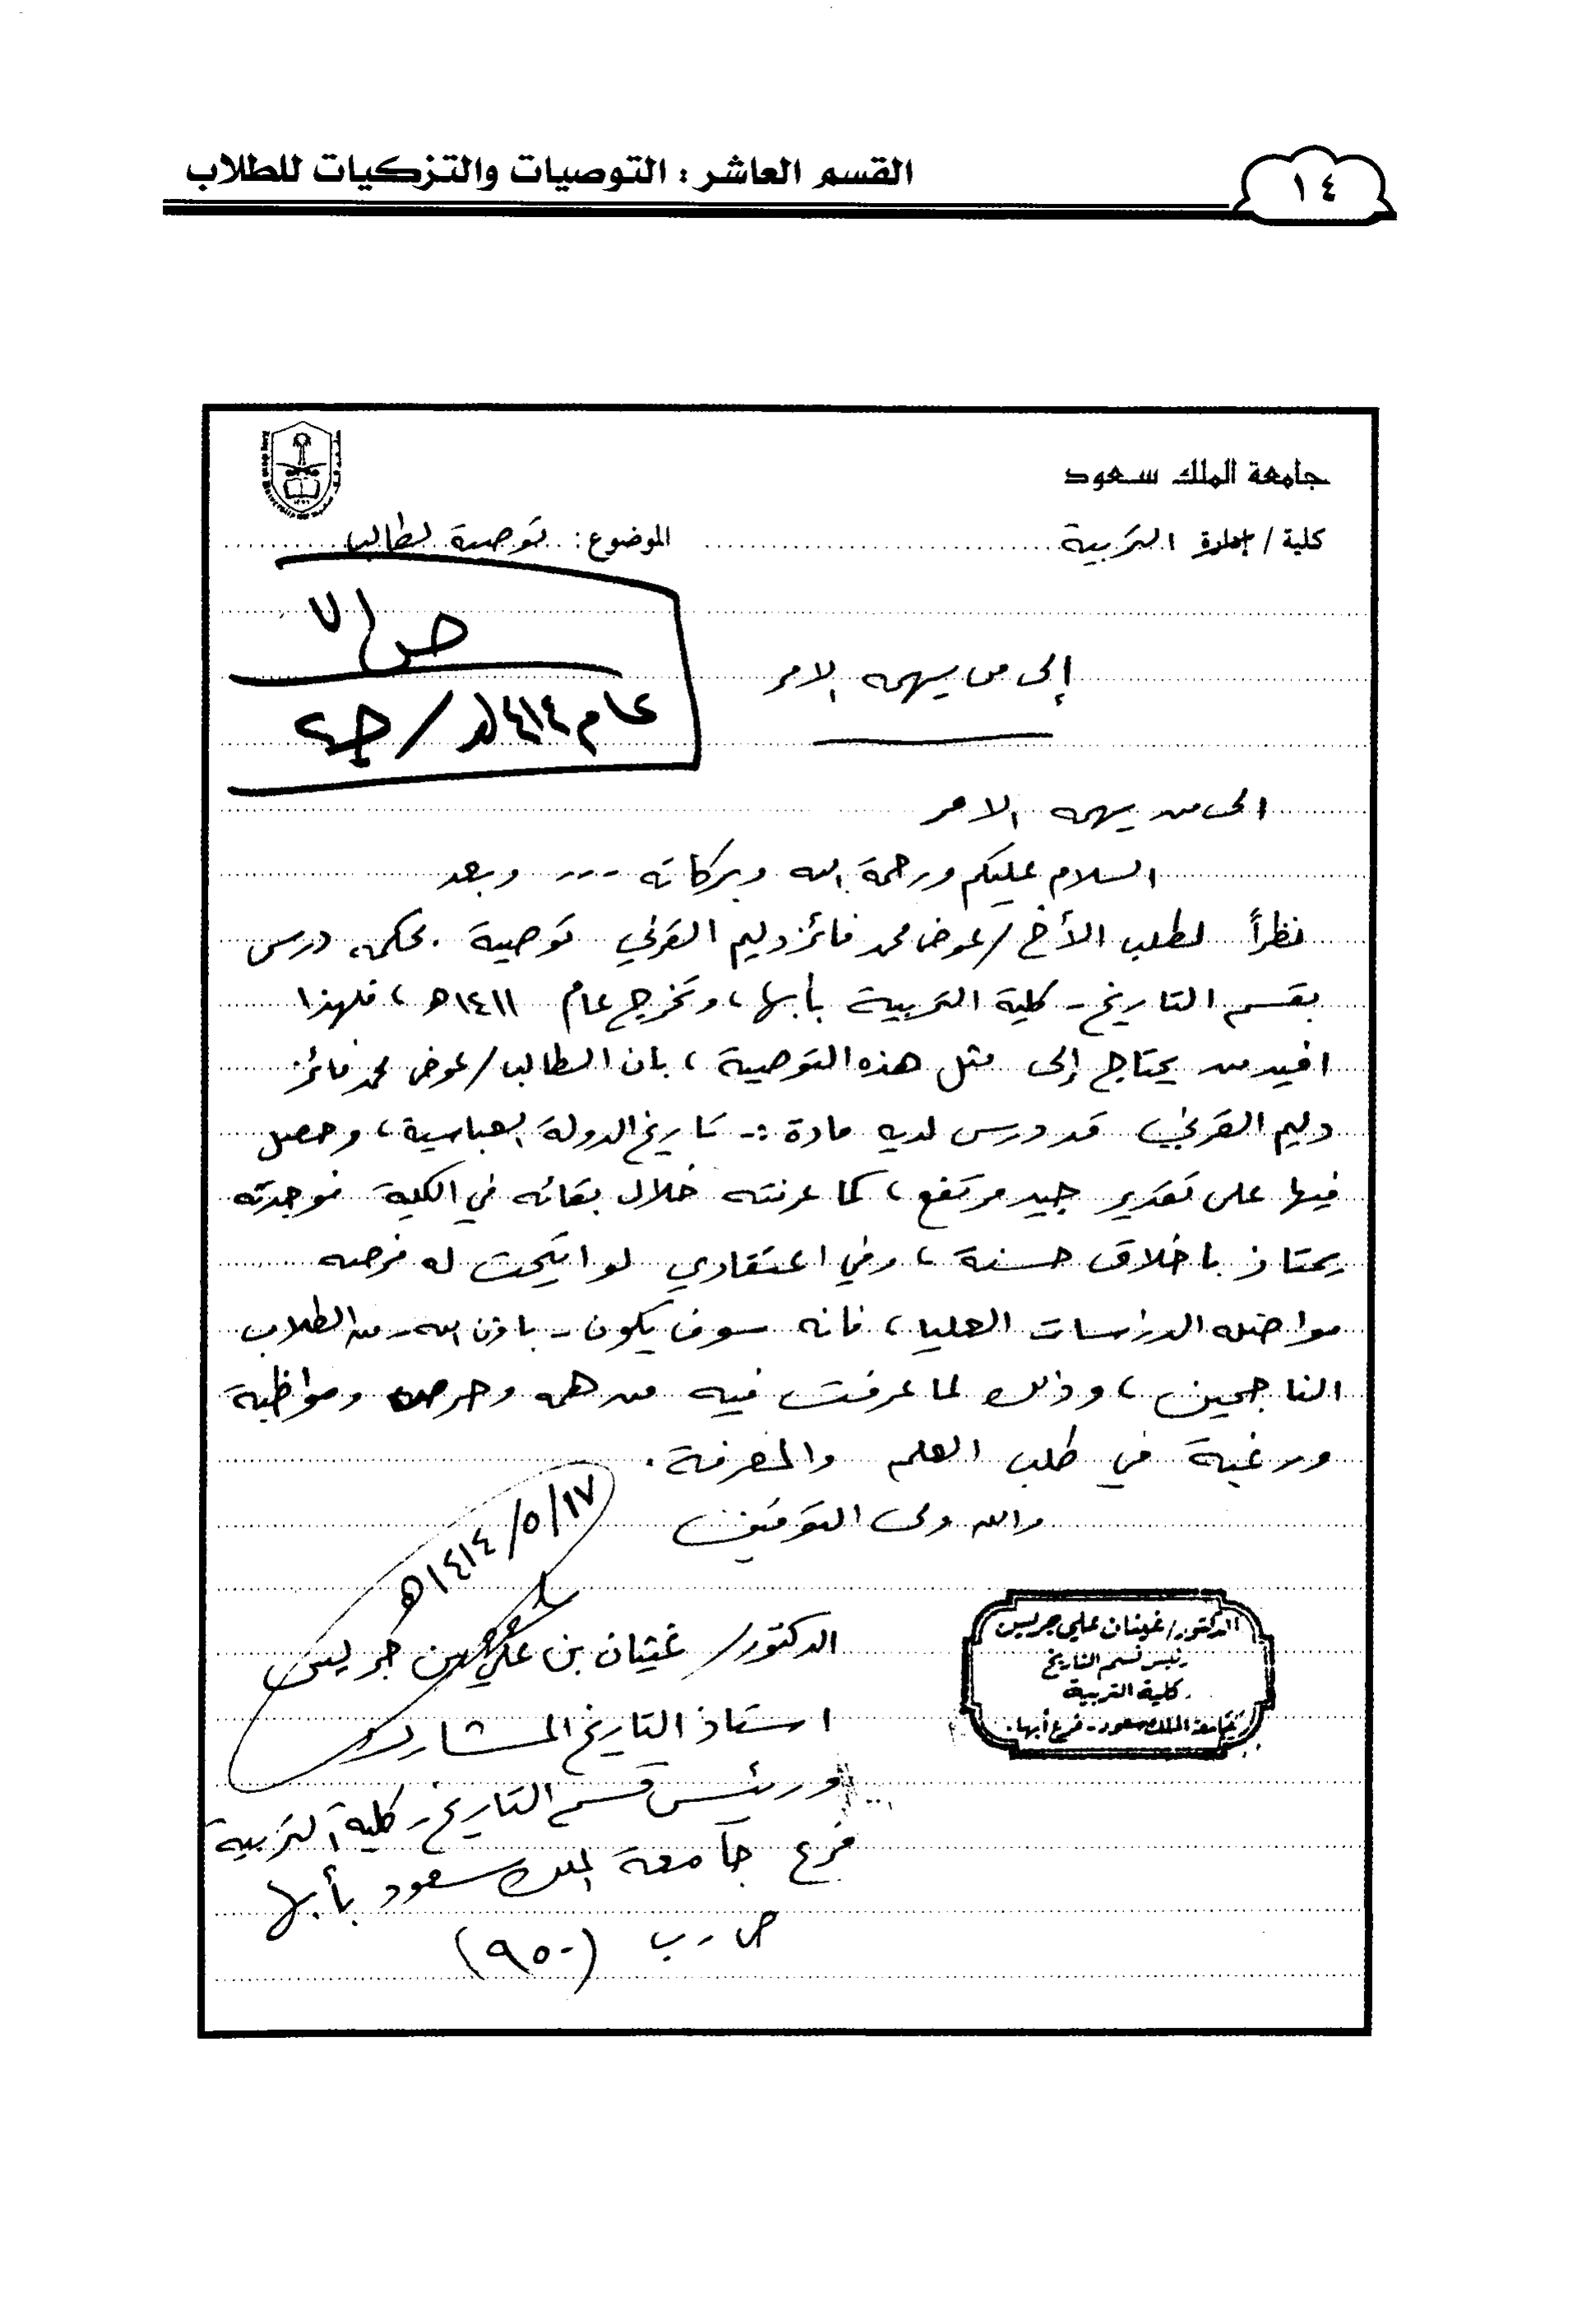 القسم العاشر : التوصيات والتزكيات للطلاب
١٤
جامعة الملك سعود
كلية / إدارة التربية
الموضوع: توصية لطالب
ص/٧
عام ١٤١٤هـ / جـ٢
إلى من يهمه الامر
الى من يهمه الامر
السلام عليكم ورحمة الله وبركاته --- وبعد
نظراً لطلب الأخ / عوض محمد فائز دليم القرني توصية بحكمه درس
بقسم التاريخ - كلية التربية بأبها، وتخرج عام ١٤١١هـ، فلهذا
افيد من يحتاج إلى مثل هذه التوصية، بان الطالب / عوض محمد فائز
دليم القرني قد درس لديه مادة :- تاريخ الدولة العباسية، وحصل
فيها على تقدير جيد مرتفع، كما عرفته خلال بقائه في الكلية فوجدته
يمتاز باخلاق حسنة، وفي اعتقادي لو اتيحت له فرصه
مواصله الدراسات العليا، فانه سوف يكون - باذن الله - من الطلاب
الناجحين، وذلك لما عرفت فيه من همه وحرص ومواظبة
ورغبة في طلب العلم والمعرفة .
والله ولى التوفيق
١٧/٥/١٤١٤هـ
الدكتور / غيثان بن علي بن جريس
استاذ التاريخ المشارك
ورئيس قسم التاريخ - كلية التربية
فرع جامعة الملك سعود بأبها
ص . ب (٩٥٠)
الدكتور / غيثان علي جريس
رئيس قسم التاريخ
كلية التربية
جامعة الملك سعود - فرع أبها